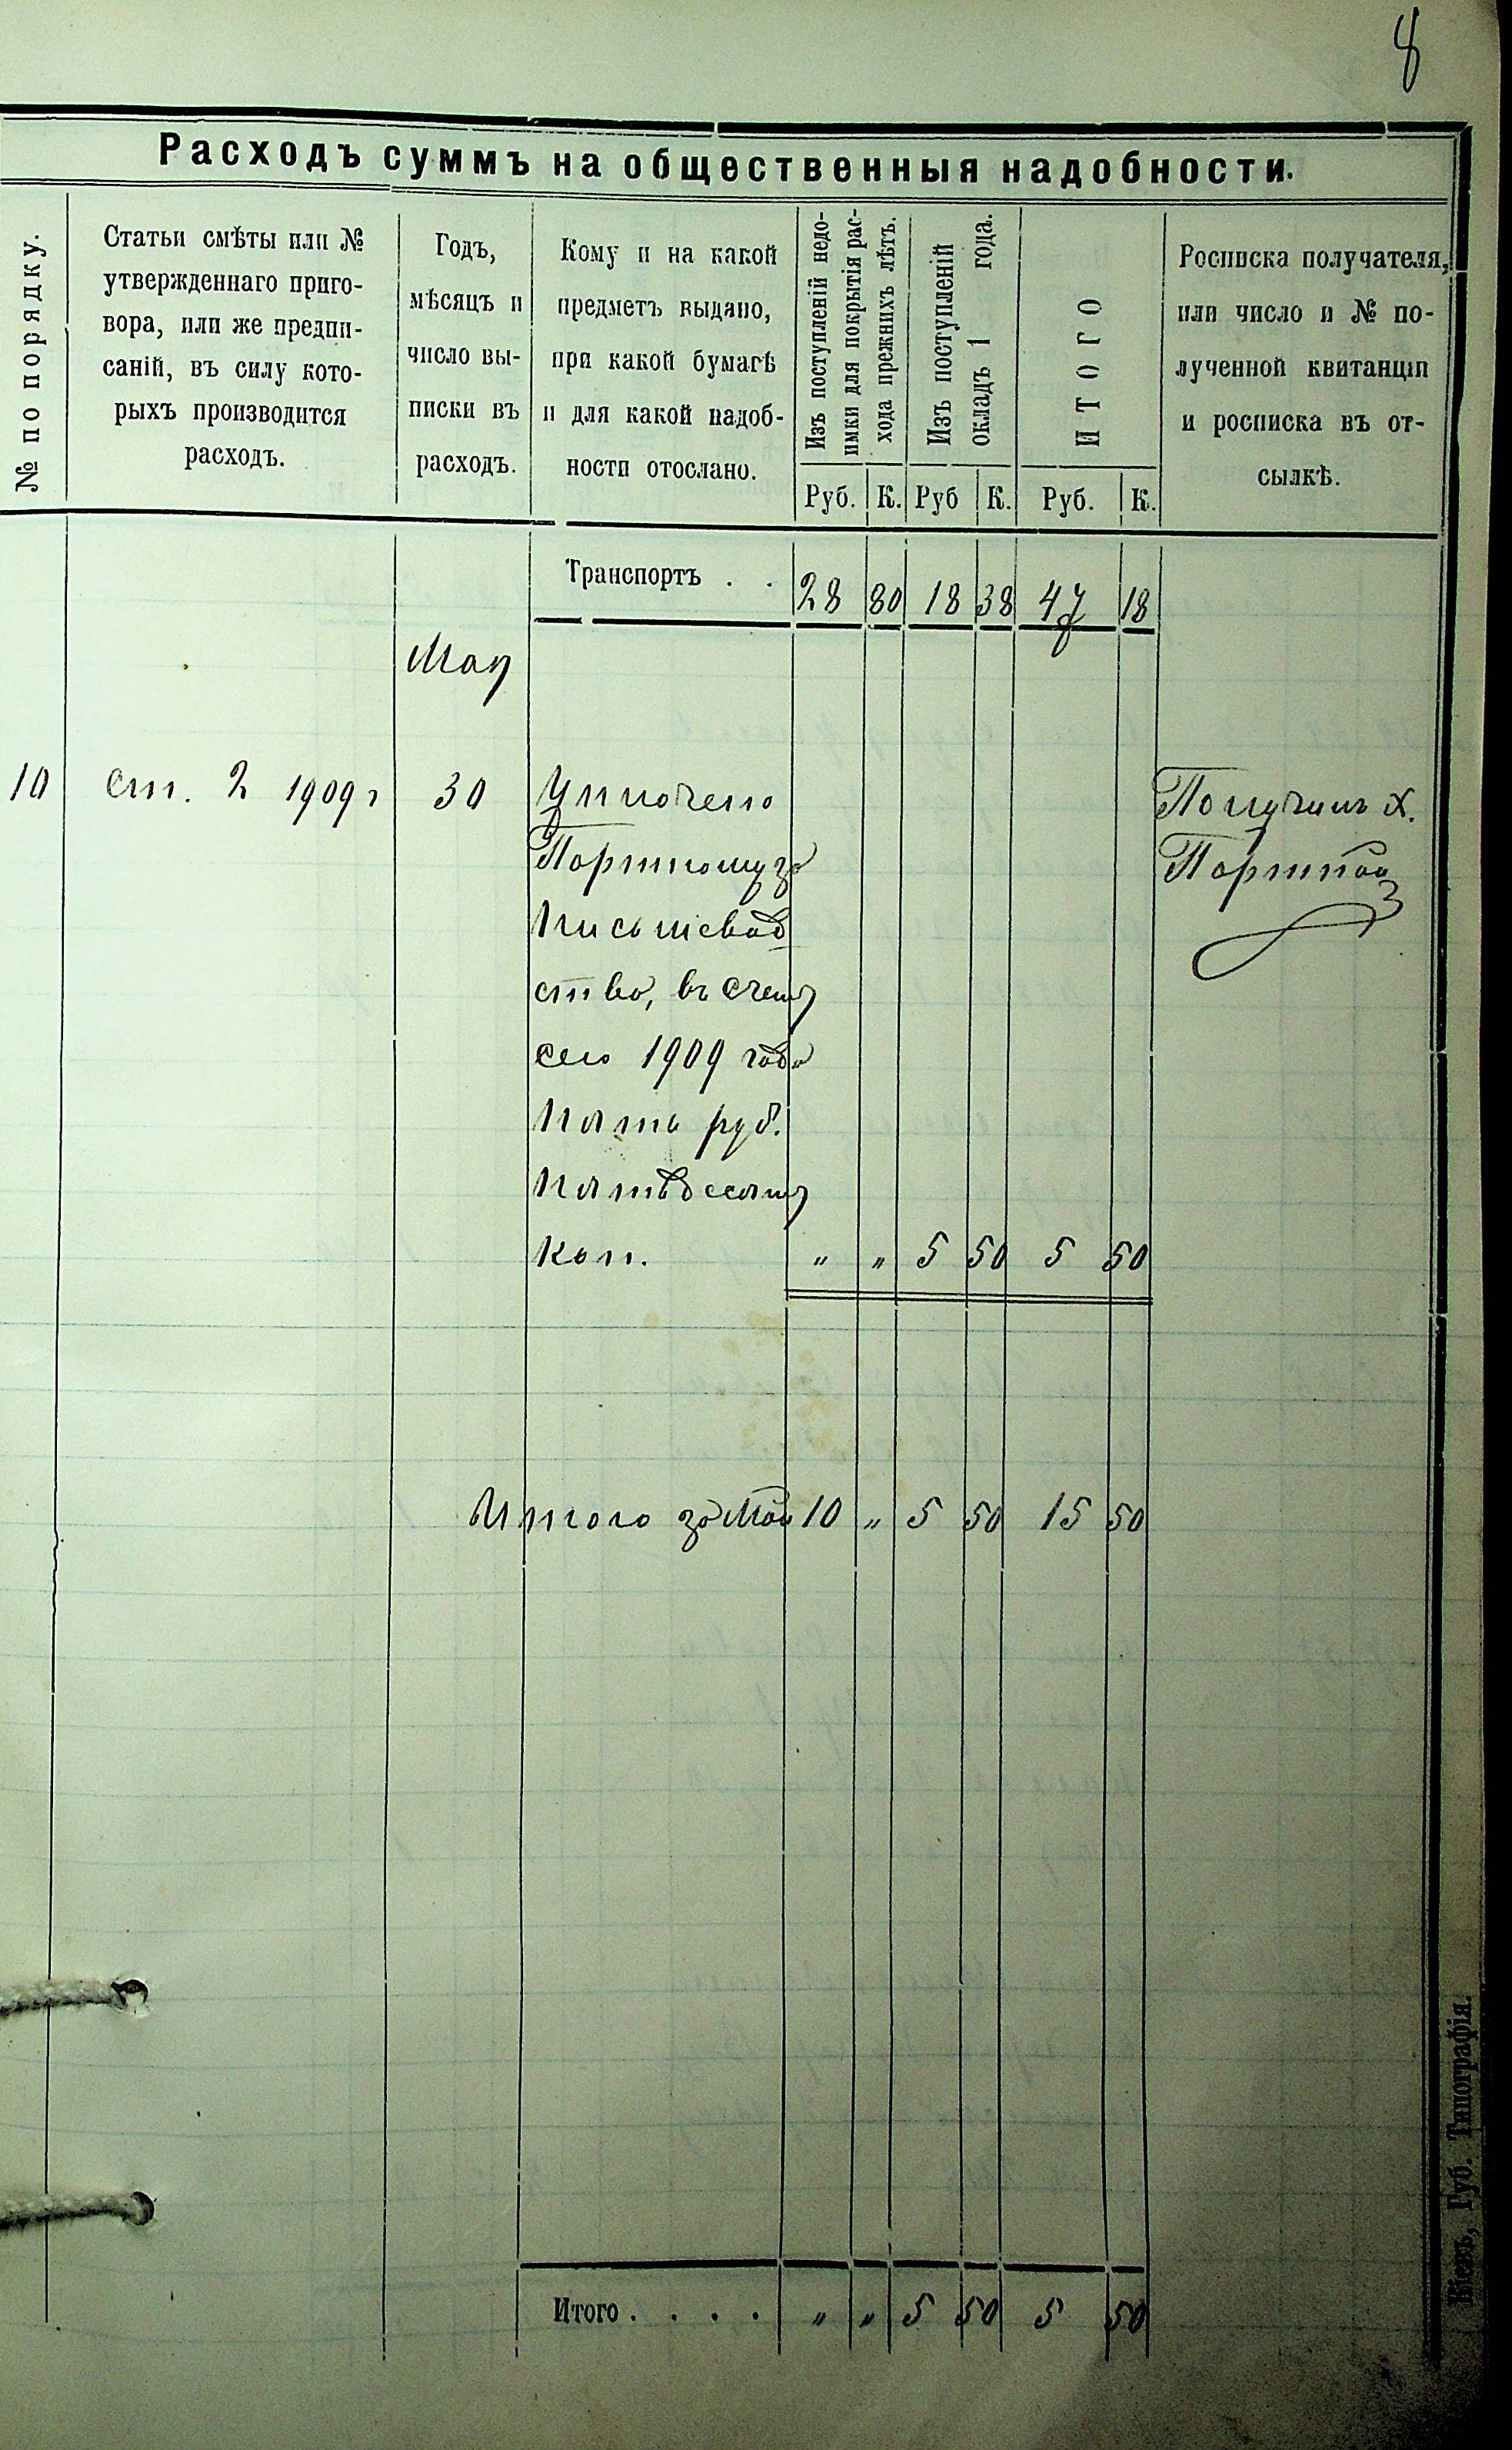 8
Расходъ суммъ на общественныя надобности.
№ по порядку.
Статьи смѣты или №
утвержденнаго приго-
вора, или же предпи-
саній, въ силу кото-
рыхъ производится
расходъ.
Годъ,
мѣсяцъ и
число вы-
писки въ
расходъ.
Кому и на какой
предметъ выдано,
при какой бумагѣ
и для какой надоб-
ности отослано.
Изъ поступленій недо-
имки для покрытія рас-
хода прежнихъ лѣтъ.
Изъ поступленій
окладъ 1 года.
ИТОГО
Росписка получателя,
или число и № по-
лученной квитанціи
и росписка въ от-
сылкѣ.
Руб. К. Руб К. Руб. К.
Транспортъ . . 28 80 18 38 47 18
Мая
10 ст. 2 1909 г 30 Уплочено Получилъ Х.
Портному за Портной
письмевод
ство, въ счетъ
сего 1909 года
пять руб.
пятьдесятъ
коп. " " 5 50 5 50
Итого за Май 10 " 5 50 15 50
Итого . . . . " " 5 50 5 50
Кіевъ, Губ. Типографія.